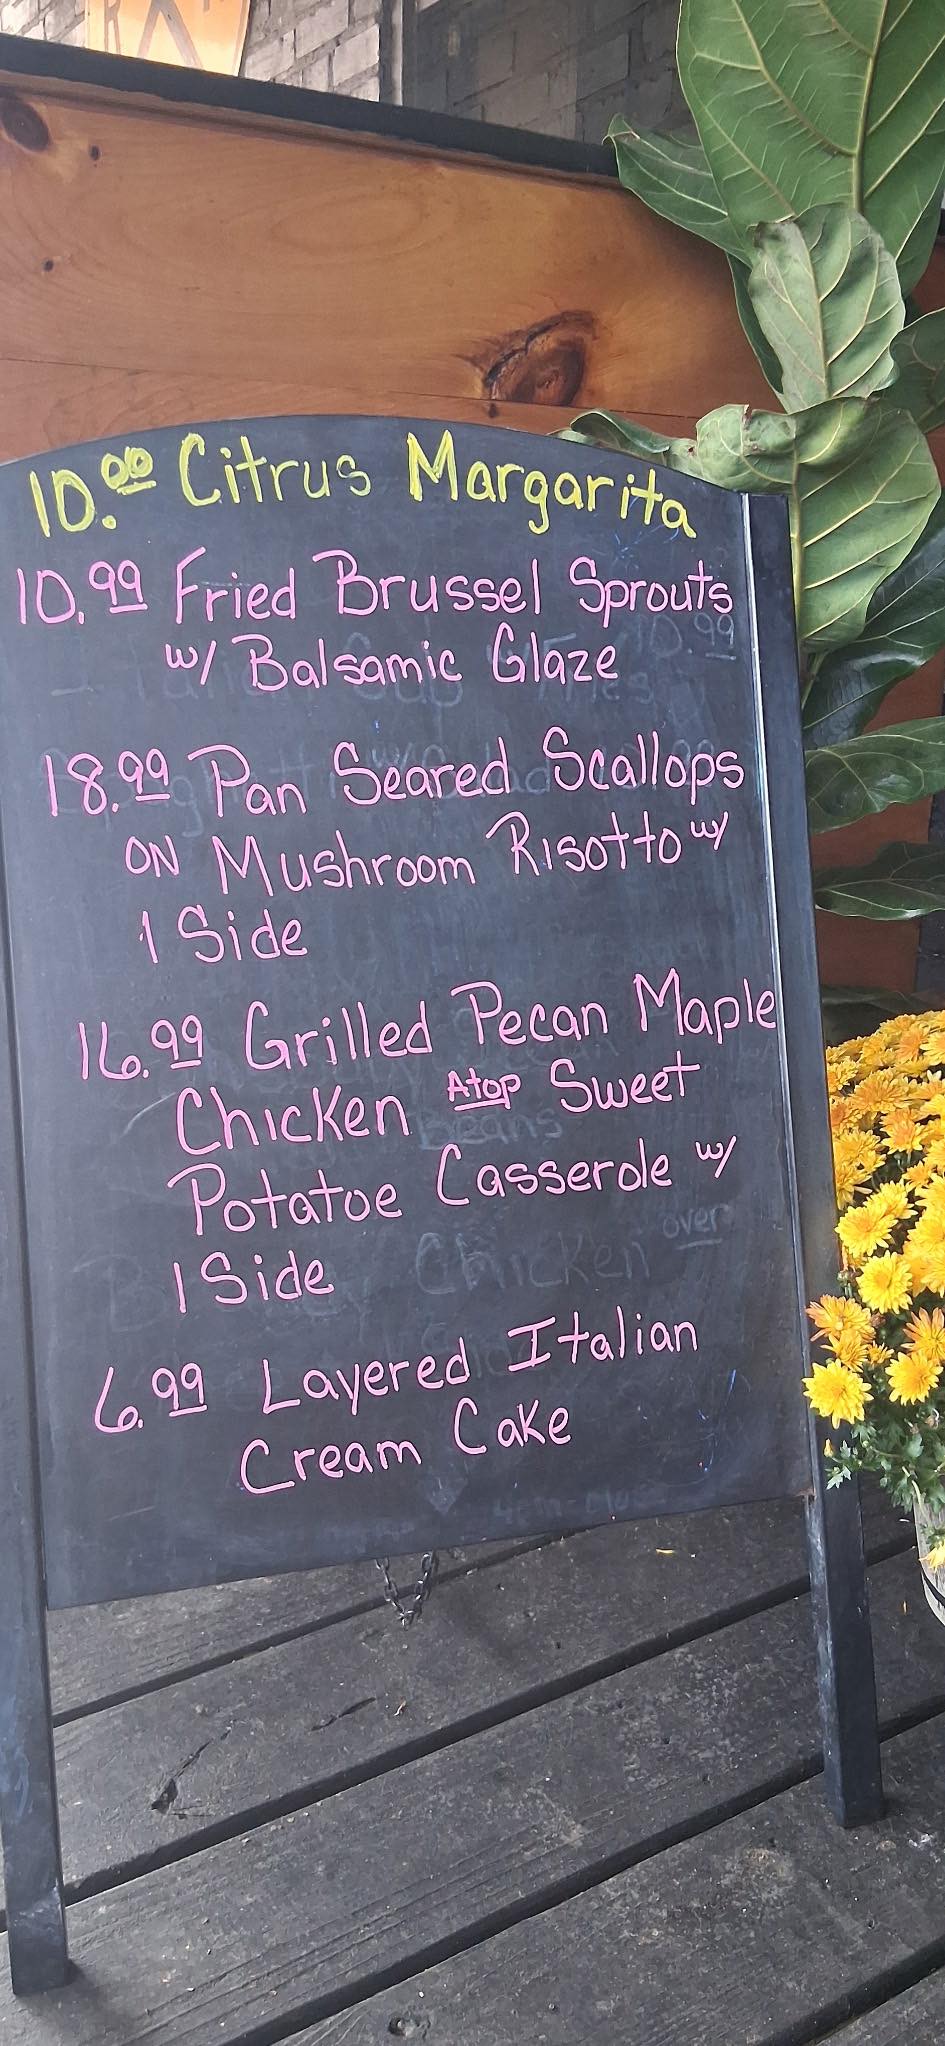 10.00 Citrus Margarita
10.99 Fried Brussel Sprouts
w/ Balsamic Glaze
18.99 Pan Seared Scallops
ON Mushroom Risotto w/
1 Side
16.99 Grilled Pecan Maple
Chicken Atop Sweet
Potatoe Casserole w/
1 Side
6.99 Layered Italian
Cream Cake